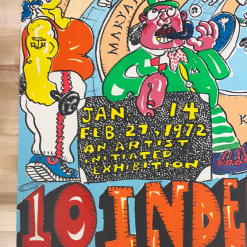 MARYLA
K
JAN 14
FEB 27, 1972
AN ARTIST
INITIATED
EXHIBITION
10 INDE